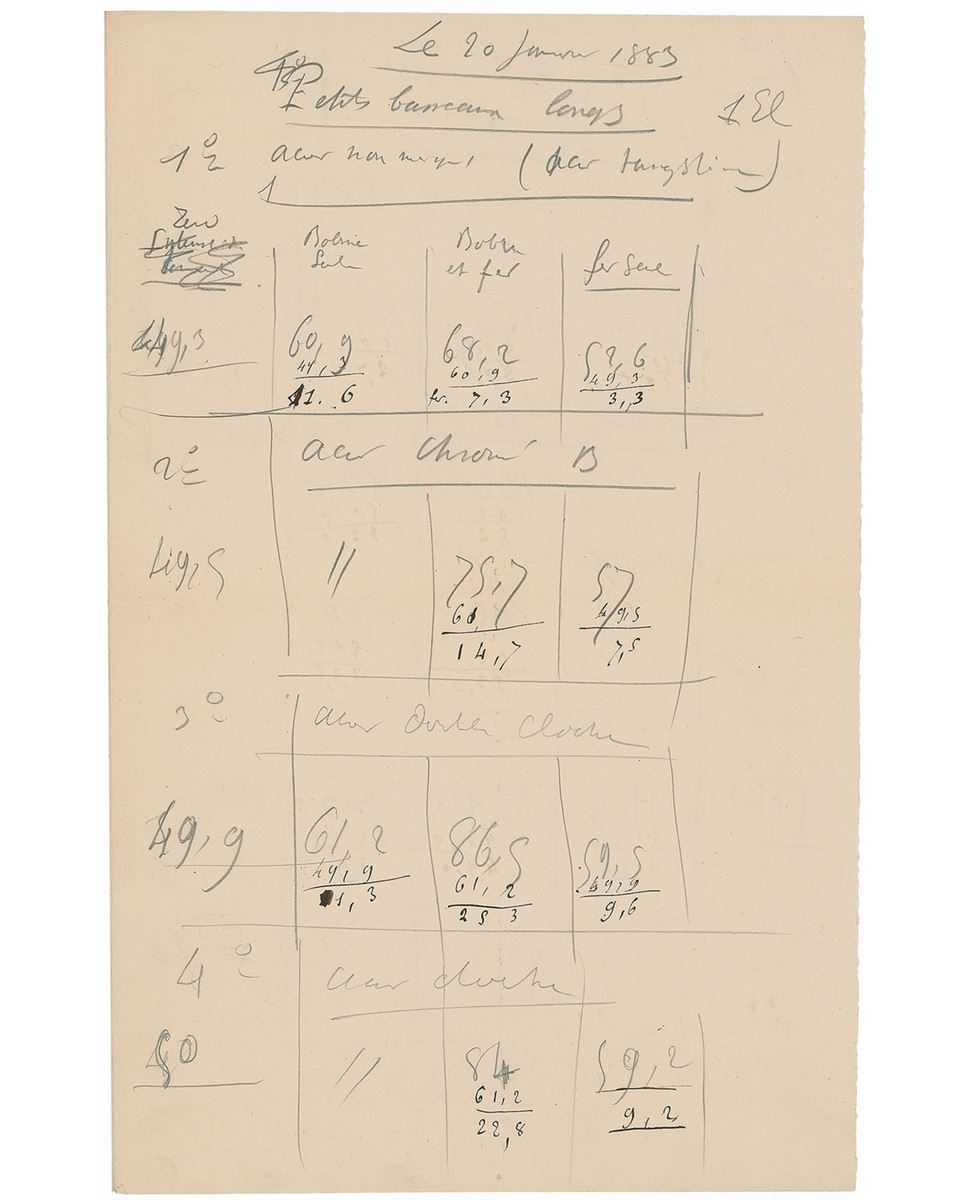 Le 20 Janvier 1883
Petits barreaux longs 1 El
1º acier non marqué (acier tungstène)
Zero
Bobine Seule
Bobine et fer
fer seul
49,3 60,9 68,2 52,6
49,3 60,9 49,3
11.6 fer. 7,3 3,3
2º acier chromé B
49,5 // 75,7 57
61, 49,5
14,7 7,5
3º acier double cloche
49,9 61,2 86,5 59,5
49,9 61,2 49,9
11,3 25 3 9,6
4º acier cloche
50 // 84 59,2
61,2
22,8 9,2